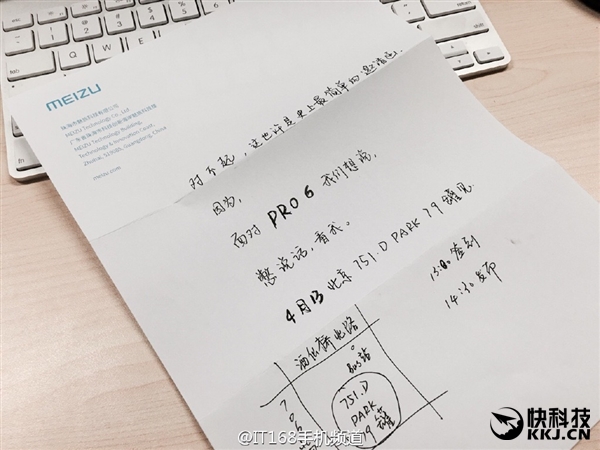 MEIZU
珠海市魅族科技有限公司
MEIZU Technology Co., Ltd.
MEIZU Technology Building,
Technology & Innovation Coast,
Zhuhai, 519085, Guangdong, China
meizu.com
对不起，这也许是史上最简单的邀请函.
因为，
面对 PRO 6 我们想说，
憋说话，看我。
4月13 北京 751.D PARK 79罐见.
签到
发布
酒仙桥北路
751.D
PARK
79罐
@IT168手机频道
快科技
KKJ.CN